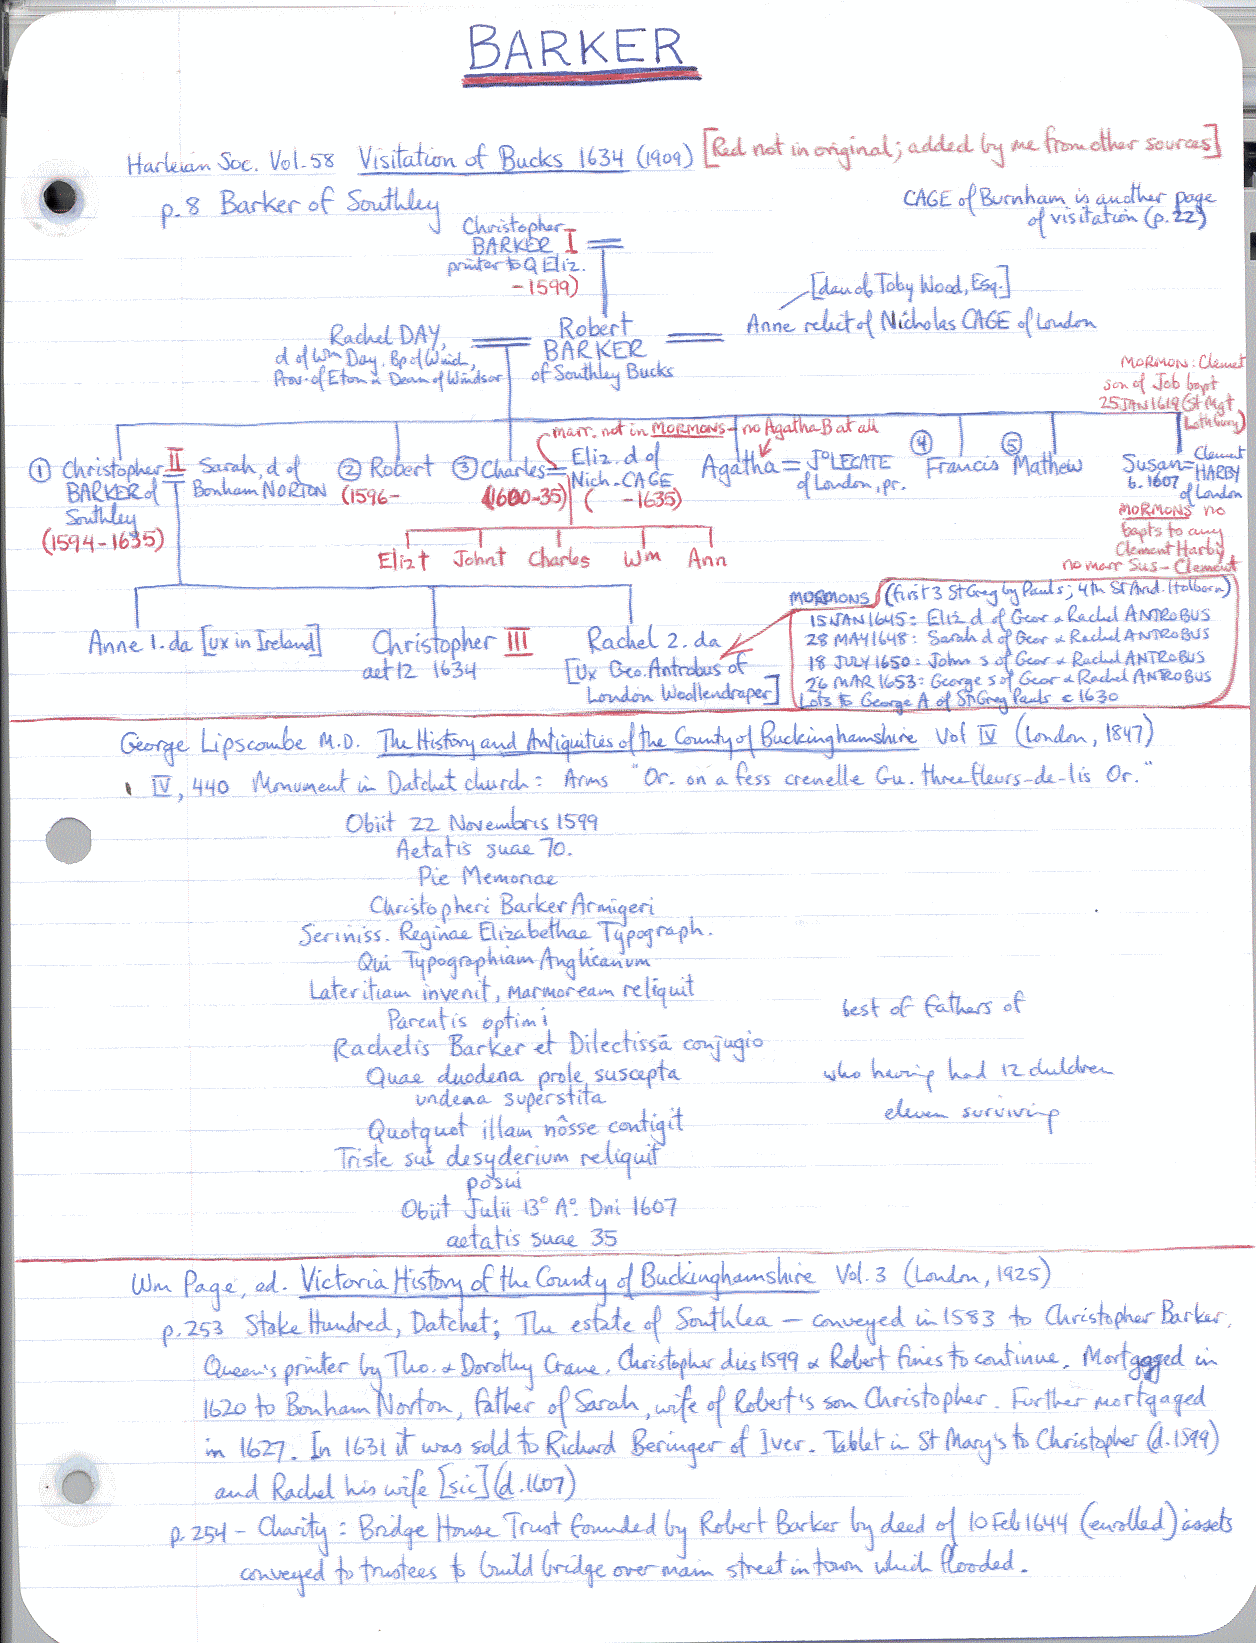 BARKER
Harleian Soc. Vol. 58 Visitation of Bucks 1634 (1909) [Red not in original; added by me from other sources]
p. 8 Barker of Southley
CAGE of Burnham is another page
of visitation (p. 22)
Christopher
BARKER I
printer to Q Eliz.
- 1599)
[dau of Toby Wood, Esq.]
Anne relict of Nicholas CAGE of London
Rachel DAY,
d of Wm Day, Bp of Winch,
Prov. of Eton & Dean of Windsor
Robert
BARKER
of Southley Bucks
MORMON: Clemet
son of Job bapt
25 JAN 1619 (St Mgt
Lothbury)
marr. not in MORMONS - no Agatha B at all
① Christopher II
BARKER of
Southley
(1594-1635)
Sarah, d of
Bonham NORTON
② Robert
(1596-
③ Charles =
(1600-35)
Eliz. d of
Nich. CAGE
( -1635)
Agatha = Jo LEGATE
of London, pr.
④
Francis
⑤
Mathew
Susan =
b. 1607
Clement
HARBY
of London
MORMONS no
bapts to any
Clement Harby
no marr Sus - Clement
Eliz † John † Charles Wm Ann
Anne 1. da [ux in Ireland]
Christopher III
aet 12 1634
Rachel 2. da
[Ux Geo. Antrobus of
London Woollendraper]
MORMONS (first 3 St Greg by Pauls; 4th St And. Holborn)
15 JAN 1645: Eliz d of Geor & Rachel ANTROBUS
28 MAY 1648: Sarah d of Geor & Rachel ANTROBUS
18 JULY 1650: John s of Geor & Rachel ANTROBUS
26 MAR 1653: George s of Geor & Rachel ANTROBUS
Lots to George A of St Greg Pauls c 1630
George Lipscombe M.D. The History and Antiquities of the County of Buckinghamshire Vol IV (London, 1847)
IV, 440 Monument in Datchet church: Arms "Or. on a fess crenelle Gu. three fleurs-de-lis Or."
Obiit 22 Novembris 1599
Aetatis suae 70.
Pie Memoriae
Christopheri Barker Armigeri
Seriniss. Reginae Elizabethae Typograph.
Qui Typographiam Anglicanum
Lateritiam invenit, marmoream reliquit
Parentis optimi
best of fathers of
Rachelis Barker et Dilectissā conjugio
Quae duodena prole suscepta
who having had 12 children
undena superstita
eleven surviving
Quotquot illam nôsse contigit
Triste sui desyderium reliquit
posui
Obiit Julii 13° A°. Dni 1607
aetatis suae 35
Wm Page, ed. Victoria History of the County of Buckinghamshire Vol. 3 (London, 1925)
p. 253 Stoke Hundred, Datchet; The estate of Southlea - conveyed in 1583 to Christopher Barker,
Queen's printer by Tho. & Dorothy Crane. Christopher dies 1599 & Robert fines to continue. Mortgaged in
1620 to Bonham Norton, father of Sarah, wife of Robert's son Christopher. Further mortgaged
in 1627. In 1631 it was sold to Richard Beringer of Iver. Tablet in St Mary's to Christopher (d. 1599)
and Rachel his wife [sic] (d. 1607)
p. 254 - Charity: Bridge House Trust founded by Robert Barker by deed of 10 Feb 1644 (enrolled) assets
conveyed to trustees to build bridge over main street in town which flooded.